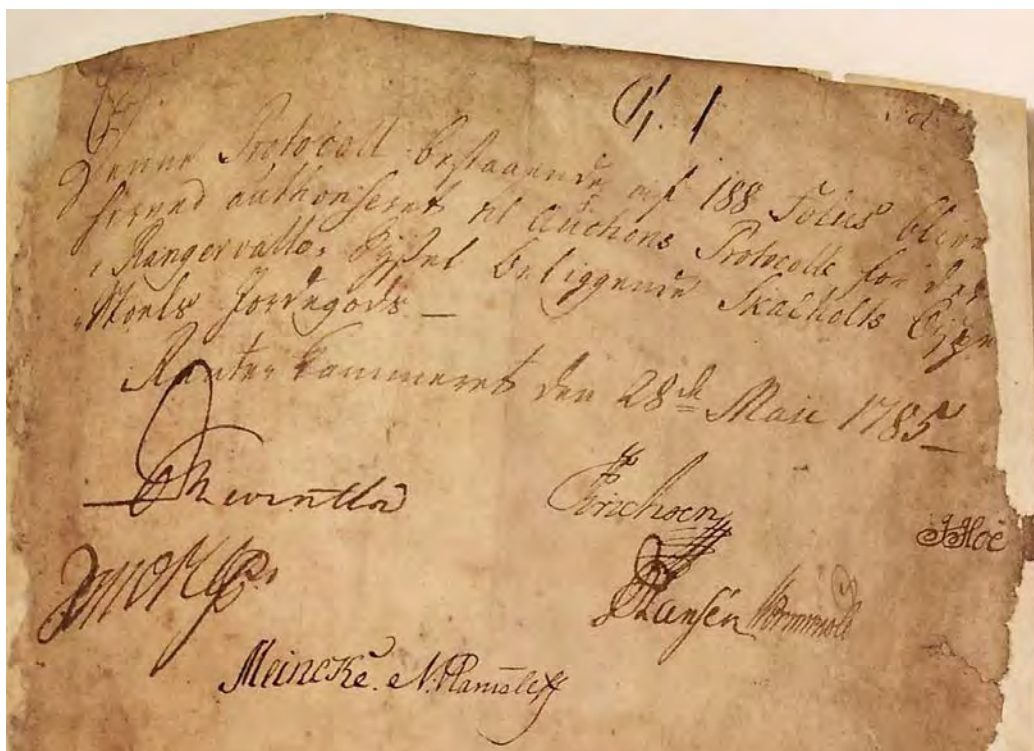 Denne Protocoll bestaaende af 188 Folius blive
herved authoriseret til Auctions Protocoll for det
i Rangervalle Syssel beliggende Skalholts Bispe
Stoels Jordegods —
Rente Kammeret den 28de Maii 1785
Reventlow
Hoë
Hansen Wormskiold
Meincke. N.